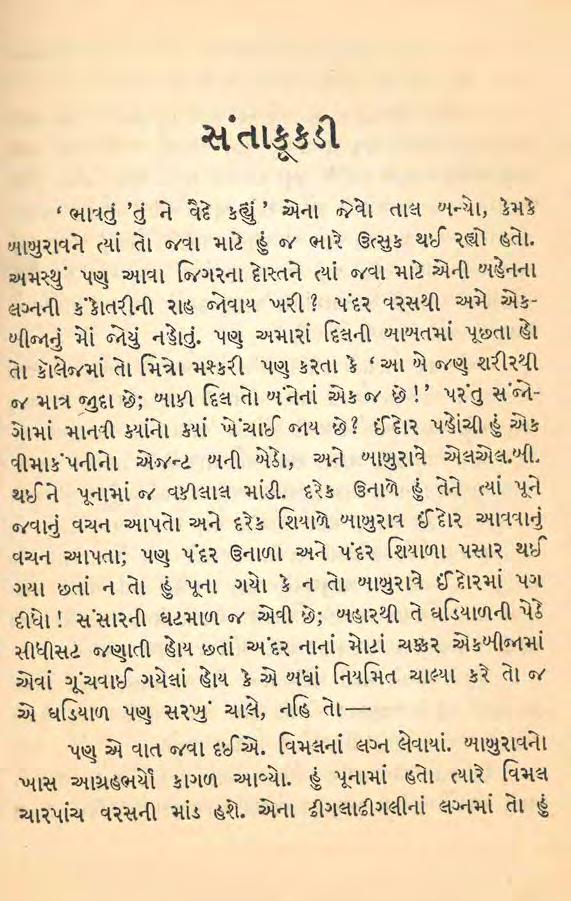 સંતાકૂકડી
‘ ભાવતું ’તું ને વૈદે કહ્યું ’ એના જેવો તાલ બન્યો, કેમકે
બાબુરાવને ત્યાં તો જવા માટે હું જ ભારે ઉત્સુક થઈ રહ્યો હતો.
અમસ્થું પણ આવા જિગરના દોસ્તને ત્યાં જવા માટે એની બહેનના
લગ્નની કંકોતરીની રાહ જોવાય ખરી ? પંદર વરસથી અમે એક-
બીજાનું મોં જોયું નહોતું. પણ અમારાં દિલની બાબતમાં પૂછતા હો
તો કૉલેજમાં તો મિત્રો મશ્કરી પણ કરતા કે ‘ આ બે જણ શરીરથી
જ માત્ર જુદા છે; બાકી દિલ તો બંનેનાં એક જ છે !’ પરંતુ સંજો-
ગોમાં માનવી ક્યાંનો ક્યાં ખેંચાઈ જાય છે ? ઈંદોર પહોંચી હું એક
વીમાકંપનીનો એજન્ટ બની બેઠો, અને બાબુરાવે એલએલ.બી.
થઈને પૂનામાં જ વકીલાલ માંડી. દરેક ઉનાળે હું તેને ત્યાં પૂને
જવાનું વચન આપતો અને દરેક શિયાળે બાબુરાવ ઈંદોર આવવાનું
વચન આપતા; પણ પંદર ઉનાળા અને પંદર શિયાળા પસાર થઈ
ગયા છતાં ન તો હું પૂના ગયો કે ન તો બાબુરાવે ઈંદોરમાં પગ
દીધો ! સંસારની ઘટમાળ જ એવી છે; બહારથી તે ઘડિયાળની પેઠે
સીધીસટ જણાતી હોય છતાં અંદર નાનાં મોટાં ચક્કર એકબીજામાં
એવાં ગૂંચવાઈ ગયેલાં હોય કે એ બધાં નિયમિત ચાલ્યા કરે તો જ
એ ઘડિયાળ પણ સરખું ચાલે, નહિ તો—
પણ એ વાત જવા દઈએ. વિમલનાં લગ્ન લેવાયાં. બાબુરાવનો
ખાસ આગ્રહભર્યો કાગળ આવ્યો. હું પૂનામાં હતો ત્યારે વિમલ
ચારપાંચ વરસની માંડ હશે. એના ઢીગલાઢીગલીનાં લગ્નમાં તો હું